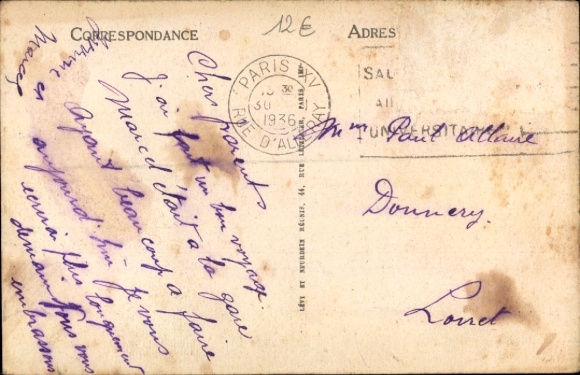 CORRESPONDANCE
12€
ADRES
Chers parents
J'ai fait un bon voyage.
Marcel était a la gare
Ayant beaucoup a faire
aujourd'hui je vous
écrirai plus longuement
demain. Vous vous
embrassons
Marcel et
PARIS XV
30
30
1936
RUE D'ALLERAY
SAL
UNIVERSITA
LÉVY ET NEURDEIN RÉUNIS, 44, RUE LETELLIER, PARIS, IMP.
Mme Paul Allaire
Donnery.
Loiret